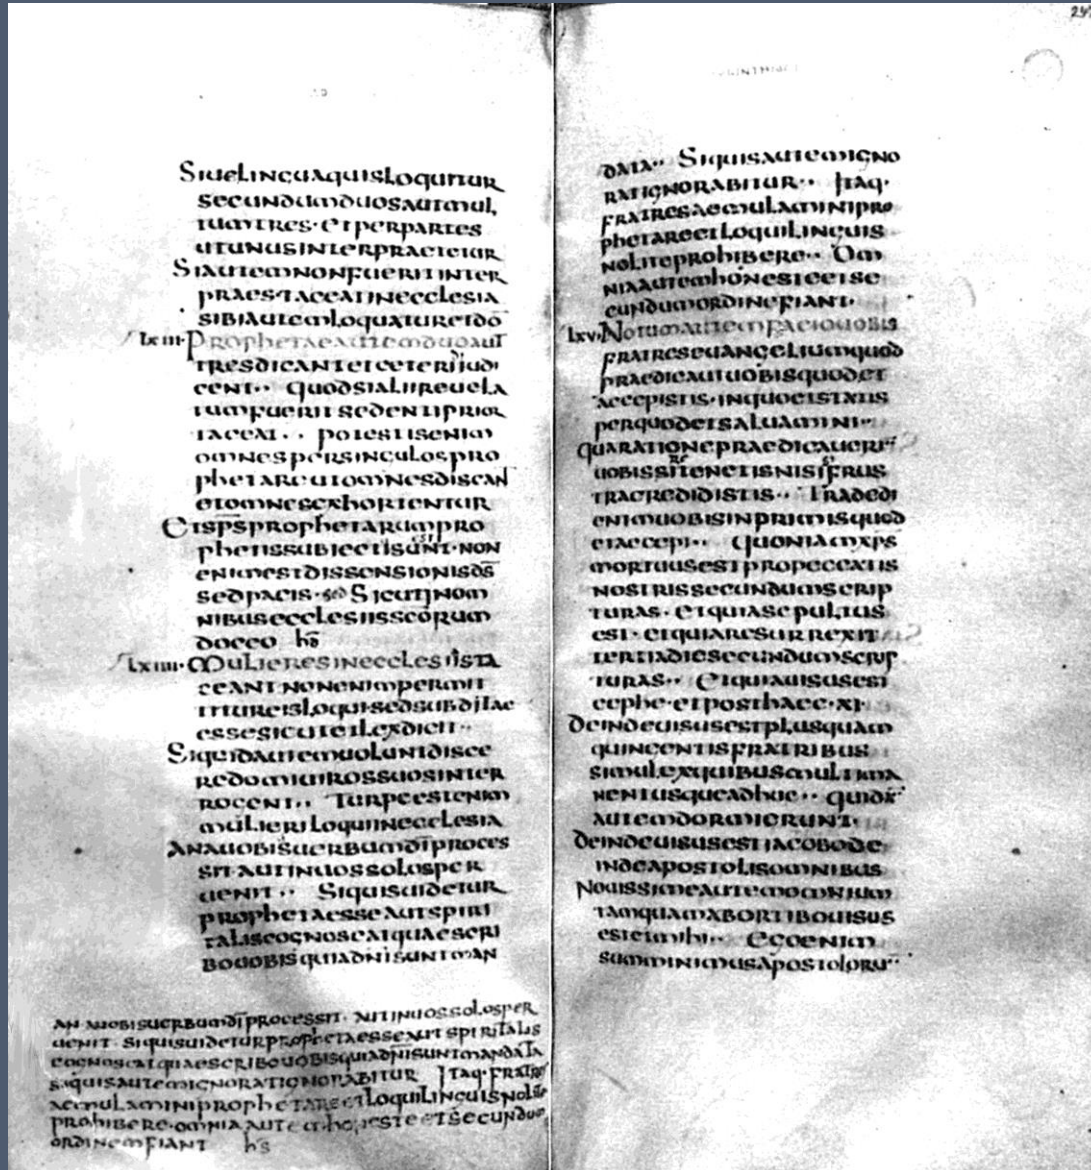 Siuelinguaquisloquitur
secundumduosautmul,
tumtres·etperpartes
utunusinterpraetetur
Siautemnonfueritinter
praes·taceatinecclesia
sibiautemloquaturetdō
lxiii·Prophetaeautemduoaut
tresdicantetceteriiudi
cent·· quodsialiireuela
tumfueritsedentiprior
taceat·· potestisenim
omnespersingulospro
phetareutomnesdiscan
etomnesexhortentur
Etsp̄sprophetarumpro
phetissubiectisunt·non
est
enimestdissensionisd̄s
sedpacis· Sicutinom
nibusecclesiissc̄orum
doceo hs̄
lxiiii·Mulieresinecclesiista
ceant·nonenimpermit
titureisloqui·sedsubditae
essesicutetlexdicit··
Siquidautemuoluntdisce
redomiuirossuosinter
rogent·· Turpeestenim
mulieriloquiinecclesia
Anauobisuerbumdīproces
sit·autinuossolosper
uenit·· Siquisuidetur
prophetaesseautspiri
taliscognoscatquaescri
bouobisquiadn̄isuntman
an auobisuerbumdīprocessit· autinuossolosper
uenit· siquisuideturprophetaesseautspiritalis
cognoscatquaescribouobisquiadn̄isuntmandata
siquisautemignoratignorabitur Itaq·fratres
aemulaminiprophetareetloquilinguisnolite
prohibere·omniaautemhonesteetsecundum
ordinemfiant hs̄
data·· Siquisautemigno
ratignorabitur·· Itaq·
fratresaemulaminipro
phetareetloquilinguis
noliteprohibere·· Om
niaautemhonesteetse
cundumordinefiant·
lxv·Notumautemfaciouobis
fratreseuangeliumquod
praedicauiuobisquodet
accepistis·inquoetstatis
perquodetsaluamini··
quarationepraedicauerim
uobissitenetisnisifrus
tracredidistis·· Tradedi
enimuobisinprimisquod
etaccepi·· quoniamxp̄s
mortuusestpropeccatis
nostrissecundumscrip
turas·etquiasepultus
est·etquiaresurrexit
tertiadiesecundumscrip
turas·· Etquiauisusest
cephe·etposthaec·xi·
Deindeuisusestplusquam
quingentisfratribus
simulexquibusmultima
nentusqueadhuc·· quidā
autemdormierunt·
Deindeuisusestiacobode
indeapostolisomnibus
Nouissimeautemomnium
tamquamabortibouisus
estetmihi·· Egoenim
summinimusapostoloru··